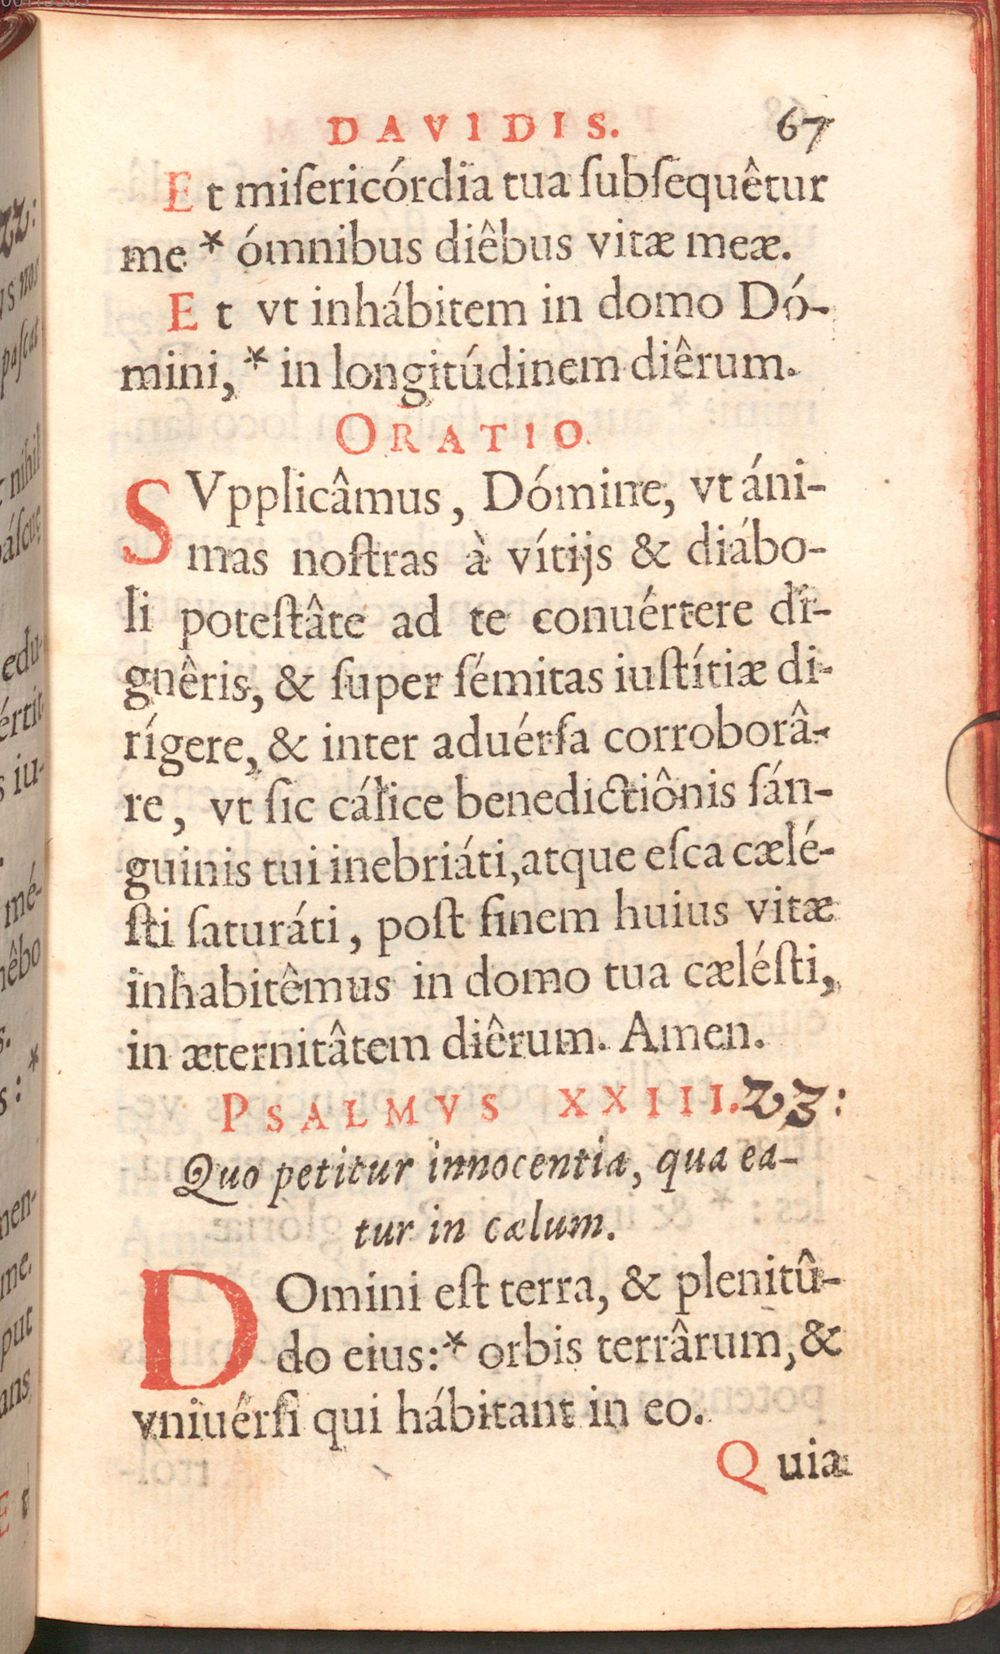 DAVIDIS. 67
Et miſericórdia tua ſubſequêtur
me * ómnibus diêbus vitæ meæ.
Et vt inhábitem in domo Dó-
mini, * in longitúdinem diêrum.
ORATIO.
SVpplicâmus, Dómine, vt áni-
mas noſtras à vítijs & diábo-
li poteſtâte ad te conuértere di-
gnêris, & ſuper ſémitas iuſtítiæ di-
rígere, & inter aduérſa corroborâ-
re, vt ſic cálice benedictiônis ſán-
guinis tui inebriáti, atque eſca cælé-
ſti ſaturáti, poſt finem huius vitæ
inhabitêmus in domo tua cæléſti,
in æternitâtem diêrum. Amen.
PSALMVS XXIII. 23:
Quo petitur innocentia, qua ea-
tur in cælum.
DOmini eſt terra, & plenitû-
do eius: * orbis terrârum, &
vniuérſi qui hábitant in eo.
Quia